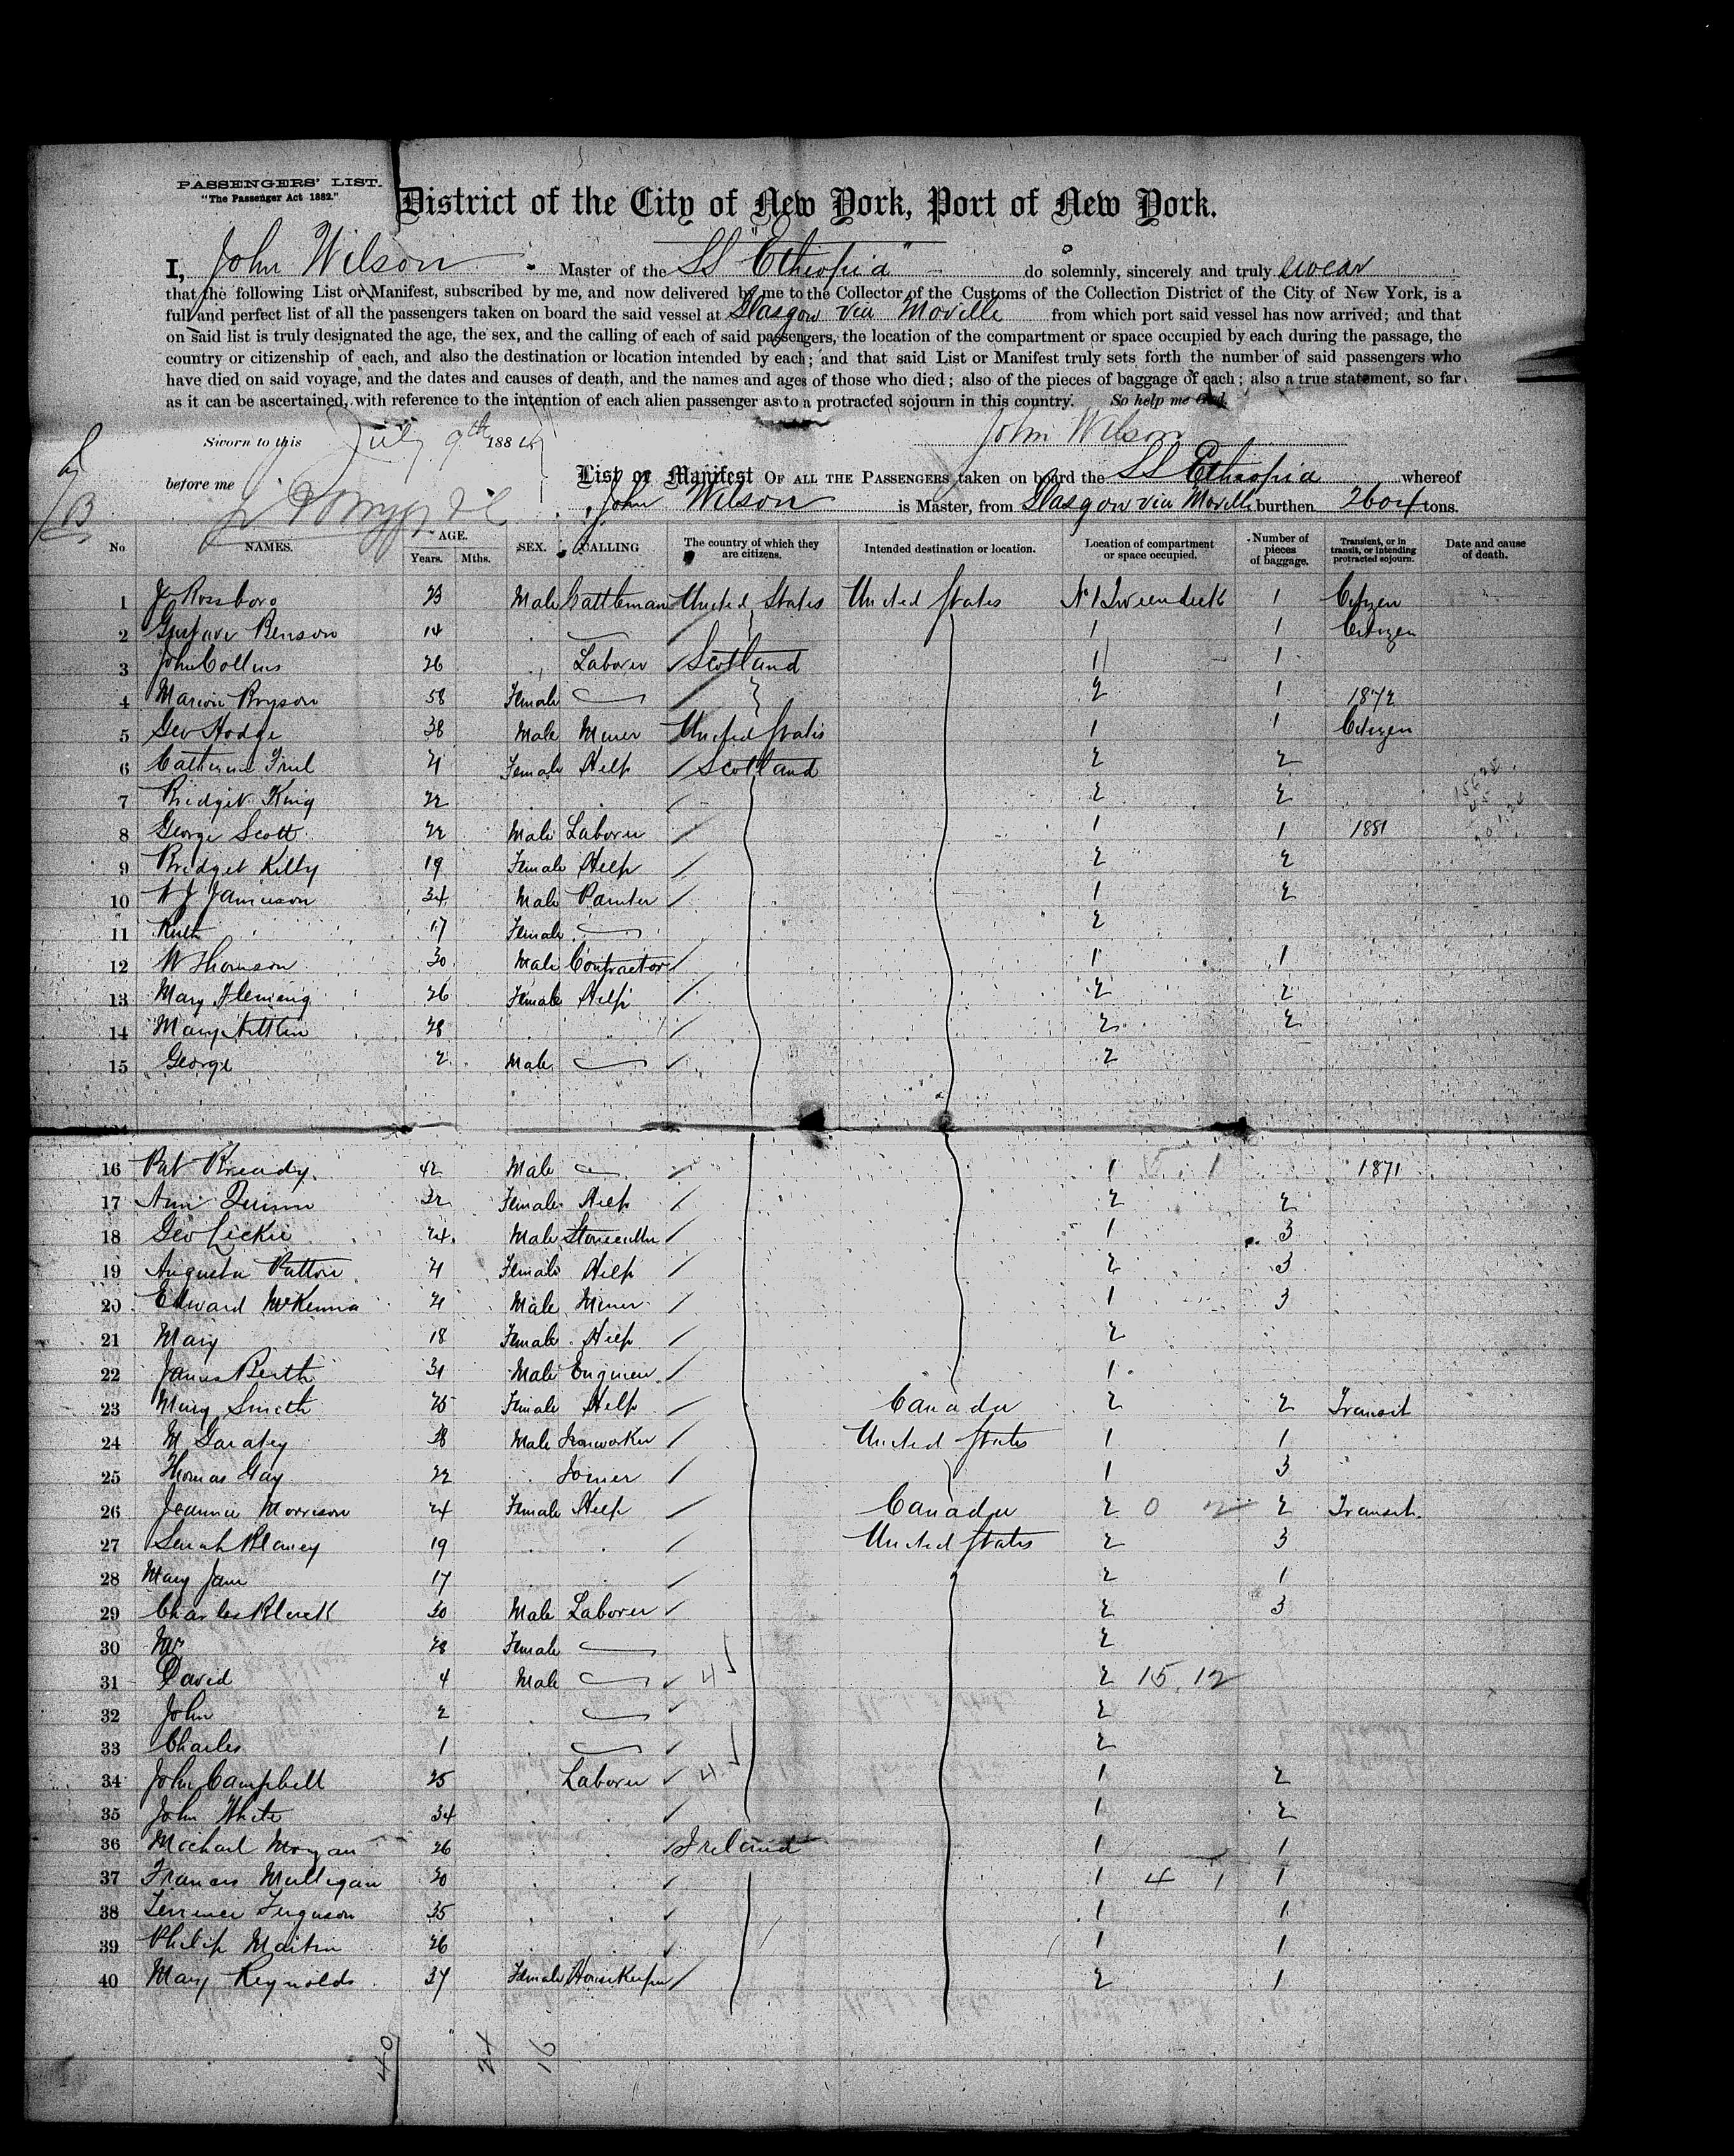 PASSENGERS' LIST.
"The Passenger Act 1882."
District of the City of New York, Port of New York.
I, John Wilson Master of the SS "Ethiopia" do solemnly, sincerely and truly swear
that the following List or Manifest, subscribed by me, and now delivered by me to the Collector of the Customs of the Collection District of the City of New York, is a
full and perfect list of all the passengers taken on board the said vessel at Glasgow via Moville from which port said vessel has now arrived; and that
on said list is truly designated the age, the sex, and the calling of each of said passengers, the location of the compartment or space occupied by each during the passage, the
country or citizenship of each, and also the destination or location intended by each; and that said List or Manifest truly sets forth the number of said passengers who
have died on said voyage, and the dates and causes of death, and the names and ages of those who died; also of the pieces of baggage of each; also a true statement, so far
as it can be ascertained, with reference to the intention of each alien passenger as to a protracted sojourn in this country. So help me God.
Sworn to this July 9th 188
John Wilson
before me
List or Manifest OF ALL THE PASSENGERS taken on board the SS Ethiopia whereof
John Wilson is Master, from Glasgow via Moville burthen 2604 tons.
No NAMES. AGE. Years. Mths. SEX. CALLING The country of which they are citizens. Intended destination or location. Location of compartment or space occupied. Number of pieces of baggage. Transient, or in transit, or intending protracted sojourn. Date and cause of death.
1 Rossboro 23 Male Cattleman United States United States No 1 Tweendeck 1 Citizen
2 Gustave Benson 14 1 1 Citizen
3 John Collins 26 Laborer Scotland 1 1
4 Marion Bryson 58 Female 2 1 1872
5 Geo Hodge 38 Male Miner United States 1 1 Citizen
6 Catherine 21 Female Help Scotland 2 2
7 Bridget King 22 2 2
8 George Scott 22 Male Laborer 1 1 1881
9 Bridget Kelly 19 Female Help 2 2
10 Jamieson 34 Male Painter 1 2
11 Ruth 17 Female 2
12 W Thomson 30 Male Contractor 1 1
13 Mary Fleming 26 Female Help 2 2
14 Mary 28 2 2
15 George 2 Male 2
16 Pat 42 Male 1 1871
17 Ann Quinn 32 Female Help 2 2
18 Geo 24 Male Stonecutter 1 3
19 Augusta Patton 21 Female Help 2 3
20 Edward McKenna 21 Male Miner 1 3
21 Mary 18 Female Help 2
22 James 31 Male Engineer 1
23 Mary Smith 25 Female Help Canada 2 2 Transit
24 M 38 Male Ironworker United States 1 1
25 Thomas Gay 22 Joiner 1 3
26 Jeannie Morrison 24 Female Help Canada 2 0 2 2 Transit
27 Sarah Blaney 19 United States 2 3
28 Mary Jane 17 2 1
29 Charles 30 Male Laborer 2 3
30 Mrs 28 Female 2
31 David 4 Male 4 2 15.12
32 John 2 2
33 Charles 1 2
34 John Campbell 25 Laborer 4 1 2
35 John White 34 1 2
36 Michael Morgan 26 Ireland 1 1
37 Francis Mulligan 20 1 4 1 1
38 Terrence Ferguson 35 1 1
39 Philip Martin 26 1 1
40 Mary Reynolds 37 Female Housekeeper 2 1
40 24 16